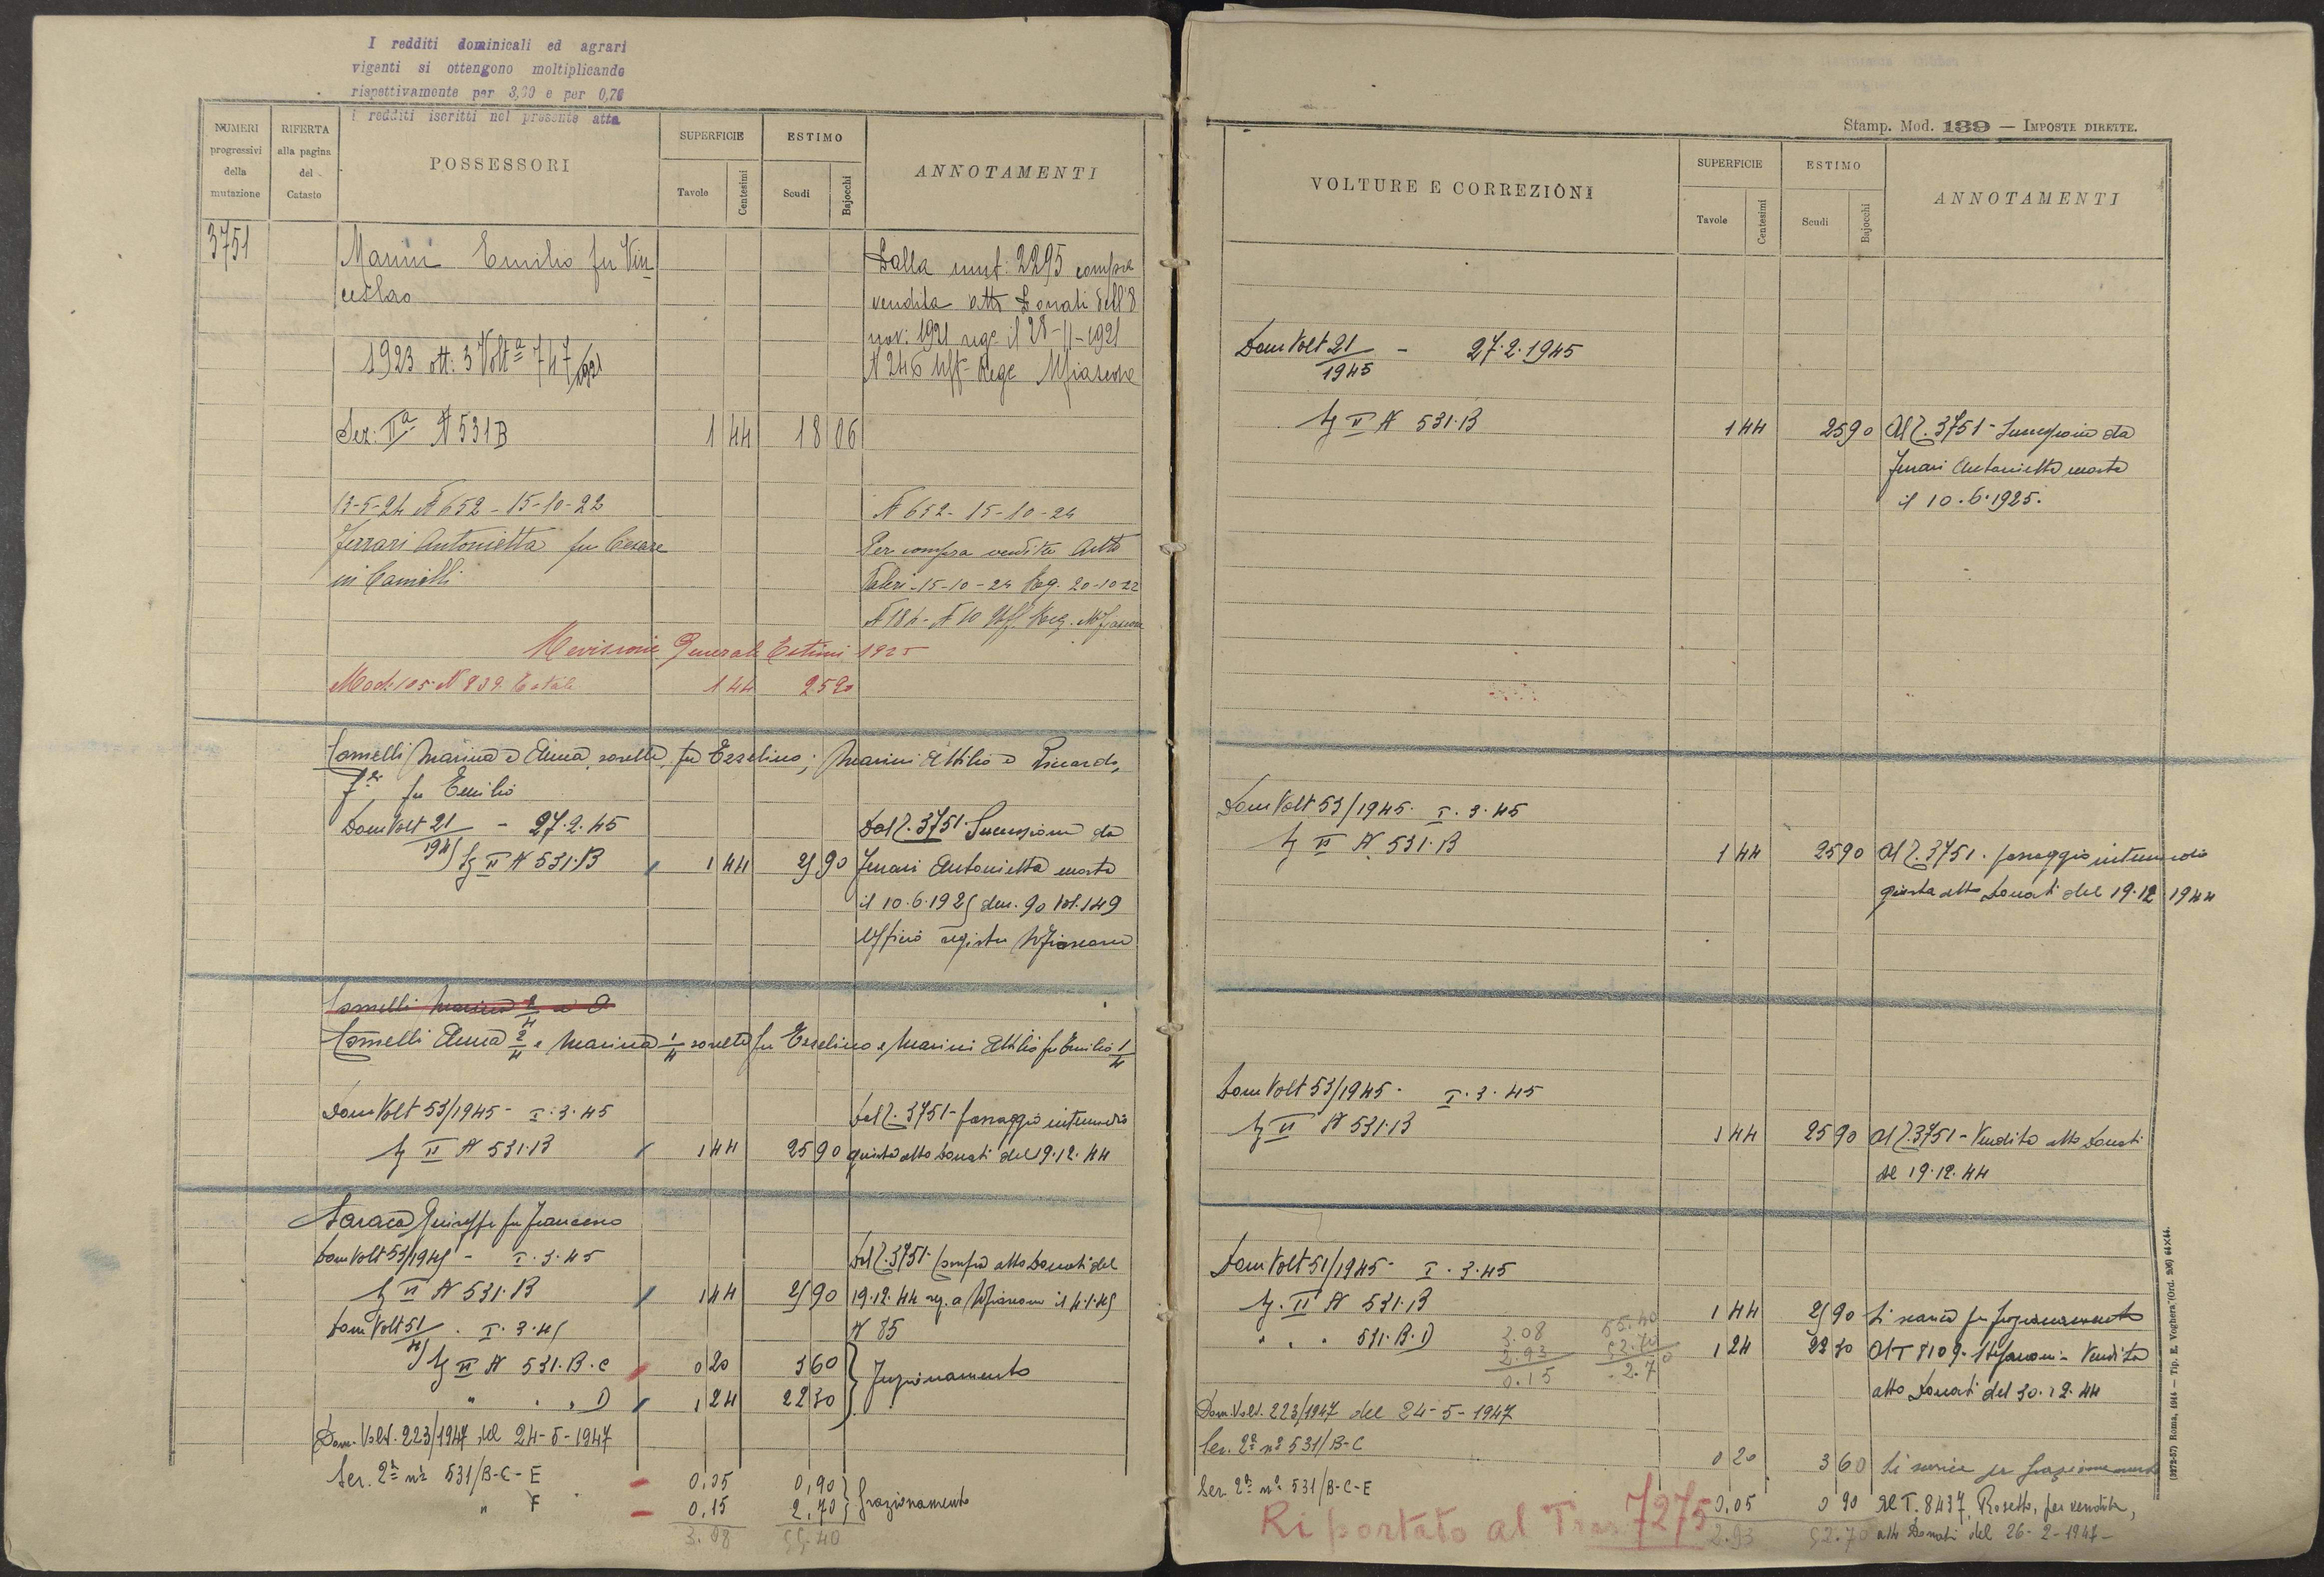 I redditi dominicali ed agrari
vigenti si ottengono moltiplicando
rispettivamente per 3,00 e per 0,70
i redditi iscritti nel presente atta
NUMERI progressivi della mutazione
RIFERTA alla pagina del Catasto
POSSESSORI
SUPERFICIE
Tavole
Centesimi
ESTIMO
Scudi
Bajocchi
ANNOTAMENTI
3751
Marini Emilio fu Vin
ceslao
Dalla mut: 2295 compra
vendita atto Donati dell'8
nov: 1921 reg.e il 28-11-1921
N 246 Uff.o Reg.e Mfiascone
1923 ott: 3 Volt.a 747/1921
Sez: IIa N 531B 1 44 18 06
13-5-24 N 652 - 15-10-22
Ferrari Antonietta fu Cesare
in Camilli
N 652 - 15-10-24
Per compra vendita Atto
15-10-24 Reg. 20-10-22
N 186 - N 10 Uff. Reg. Mfiascone
Revisione Generale Estimi 1925
Mod. 105 N 839 Estab. 1 44 25 90
Camelli Marina e Elena, sorelle, fu Ezzelino; Marini Attilio e Riccardo,
f.lli fu Emilio
Dom Volt 21/1945 - 27.2.45
Sez II N 531.B 1 44 25 90
Dal T. 3751 Successione da
Ferrari Antonietta morta
il 10.6.1925 den. 90 Vol. 149
Ufficio registro Mfiascone
Camelli Marina 2/4 e A
Camelli Elena 2/4 e Marina 1/4 sorelle fu Ezzelino e Marini Attilio fu Emilio 1/4
Dom Volt 53/1945 - I.3.45
Sez II N 531.B 1 44 25 90
Dal T. 3751 - passaggio intermedio
giusta atto Donati del 19.12.44
Saraca Giuseppe fu Francesco
Dom Volt 53/1945 - I.3.45
Sez II N 531.B 1 44 25 90
Dal T. 3751 - Compra atto Donati del
19.12.44 reg. a Mfiascone il 4.1.45
N 85
Dom Volt 51/45 . I.3.45
Sez II N 531.B.C 0 20 3 60
" . . D 1 24 22 30
Frazionamento
Dom. Volt. 223/1947 del 24-5-1947
Sez. 2a no 531/B-C-E 0,05 0,90
" F 0,15 2,70
frazionamento
3.08 55.40
Stamp. Mod. 139 — IMPOSTE DIRETTE.
VOLTURE E CORREZIONI
SUPERFICIE
Tavole
Centesimi
ESTIMO
Scudi
Bajocchi
ANNOTAMENTI
Dom Volt 21/1945 - 27.2.1945
Sez II N 531.B 1 44 25 90
Al T. 3751 - Successione da
Ferrari Antonietta morta
il 10.6.1925.
Dom Volt 53/1945. I.3.45
Sez II N 531.B 1 44 25 90
Al T. 3751. passaggio intermedio
giusta atto Donati del 19.12.1944
Dom Volt 53/1945. I.3.45
Sez II N 531.B 1 44 25 90
Al T. 3751 - Vendita atto Donati
del 19.12.44
Dom Volt 51/1945 - I.3.45
Sez. II N 531.B 1 44 25 90 Si scarica per frazionamento
" . . 531.B.D 1 24 22 30 Al T 8109. Stefanoni - Vendita
atto Donati del 30.12.44
3.08
2.93
0.15
55.40
52.70
2.70
Dom. Volt. 223/1947 del 24-5-1947
Sez. 2a no 531/B-C 0 20 3 60 Si scarica per frazionamento
Sez. 2a no 531/B-C-E 0,05 0 90 Al T. 8437, Rosetto, per vendita,
atto Donati del 26-2-1947-
2.93 52.70
Riportato al Tras 7275
(3272-57) Roma, 1914 — Tip. E. Voghera (Ord. 206) 44×44.